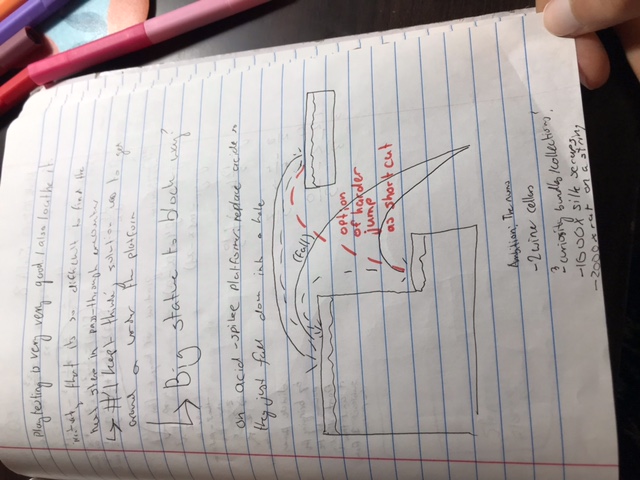 Playtesting is very very good / also loathe it.
that its so difficult to find the
next step in pass-through encounter
↳ #1 kept thinking solution was to get
around or under the platform
↳ Big statue to block way?
on acid-spikes platformer, replace acid so
they just fall down into a hole
(fall)
option
of harder
jump
as shortcut
Ambition: The nuns
-2 wine cellars
-3 curiosity bundles/collections!
-1000x silk scraps
-2000x rat on a string